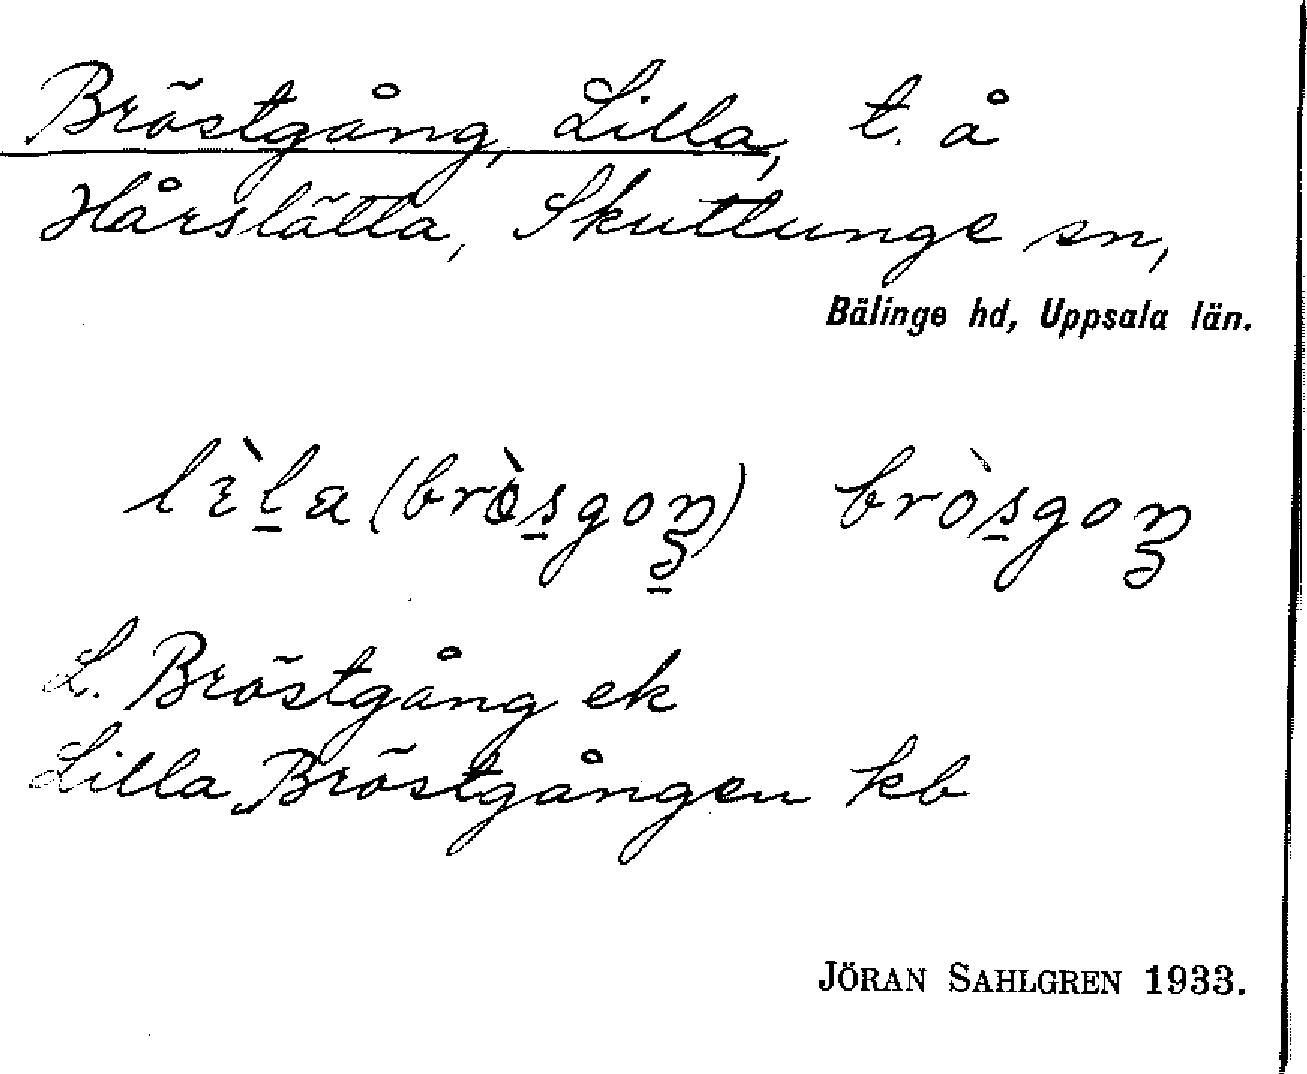 Bröstgång, Lilla, t. å
Hårslätta, Skuttunge sn,
Bälinge hd, Uppsala län.
lìla (bròsgoŋ) bròsgoŋ
L. Bröstgång ek
Lilla Bröstgången kb
JÖRAN SAHLGREN 1933.